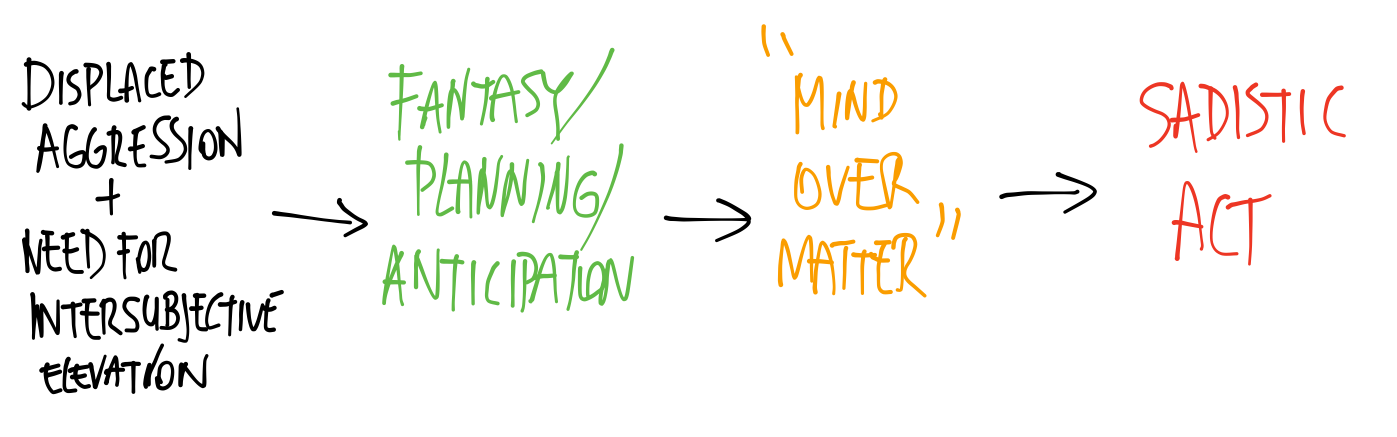 DISPLACED
AGGRESSION
+
NEED FOR
INTERSUBJECTIVE
ELEVATION
FANTASY/
PLANNING/
ANTICIPATION
"MIND
OVER
MATTER"
SADISTIC
ACT